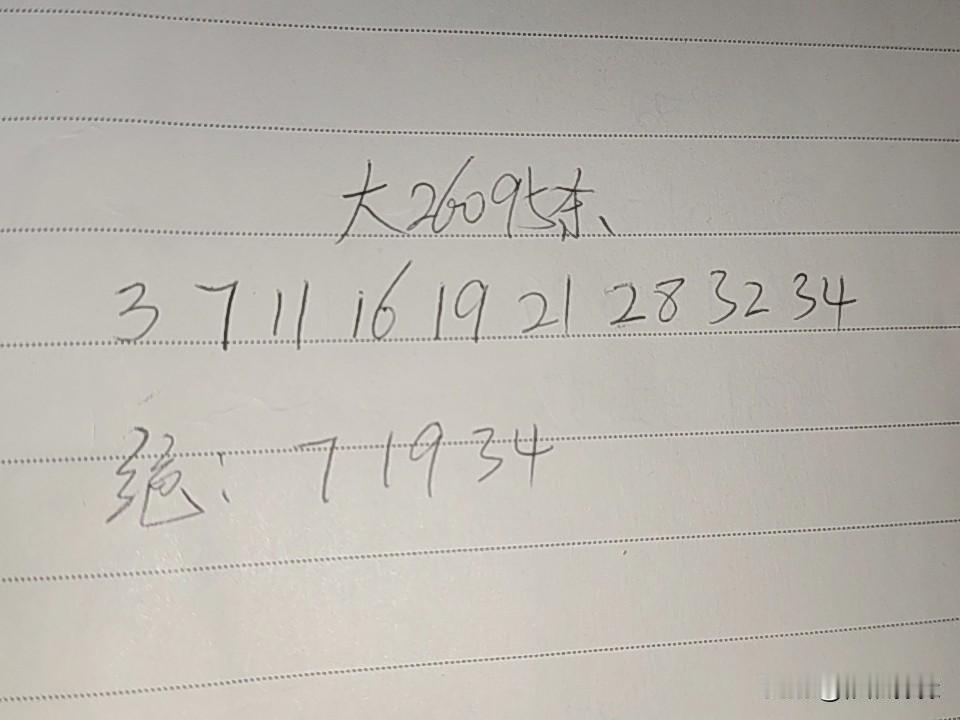 大26095杀
3 7 11 16 19 21 28 32 34
绝: 7 19 34